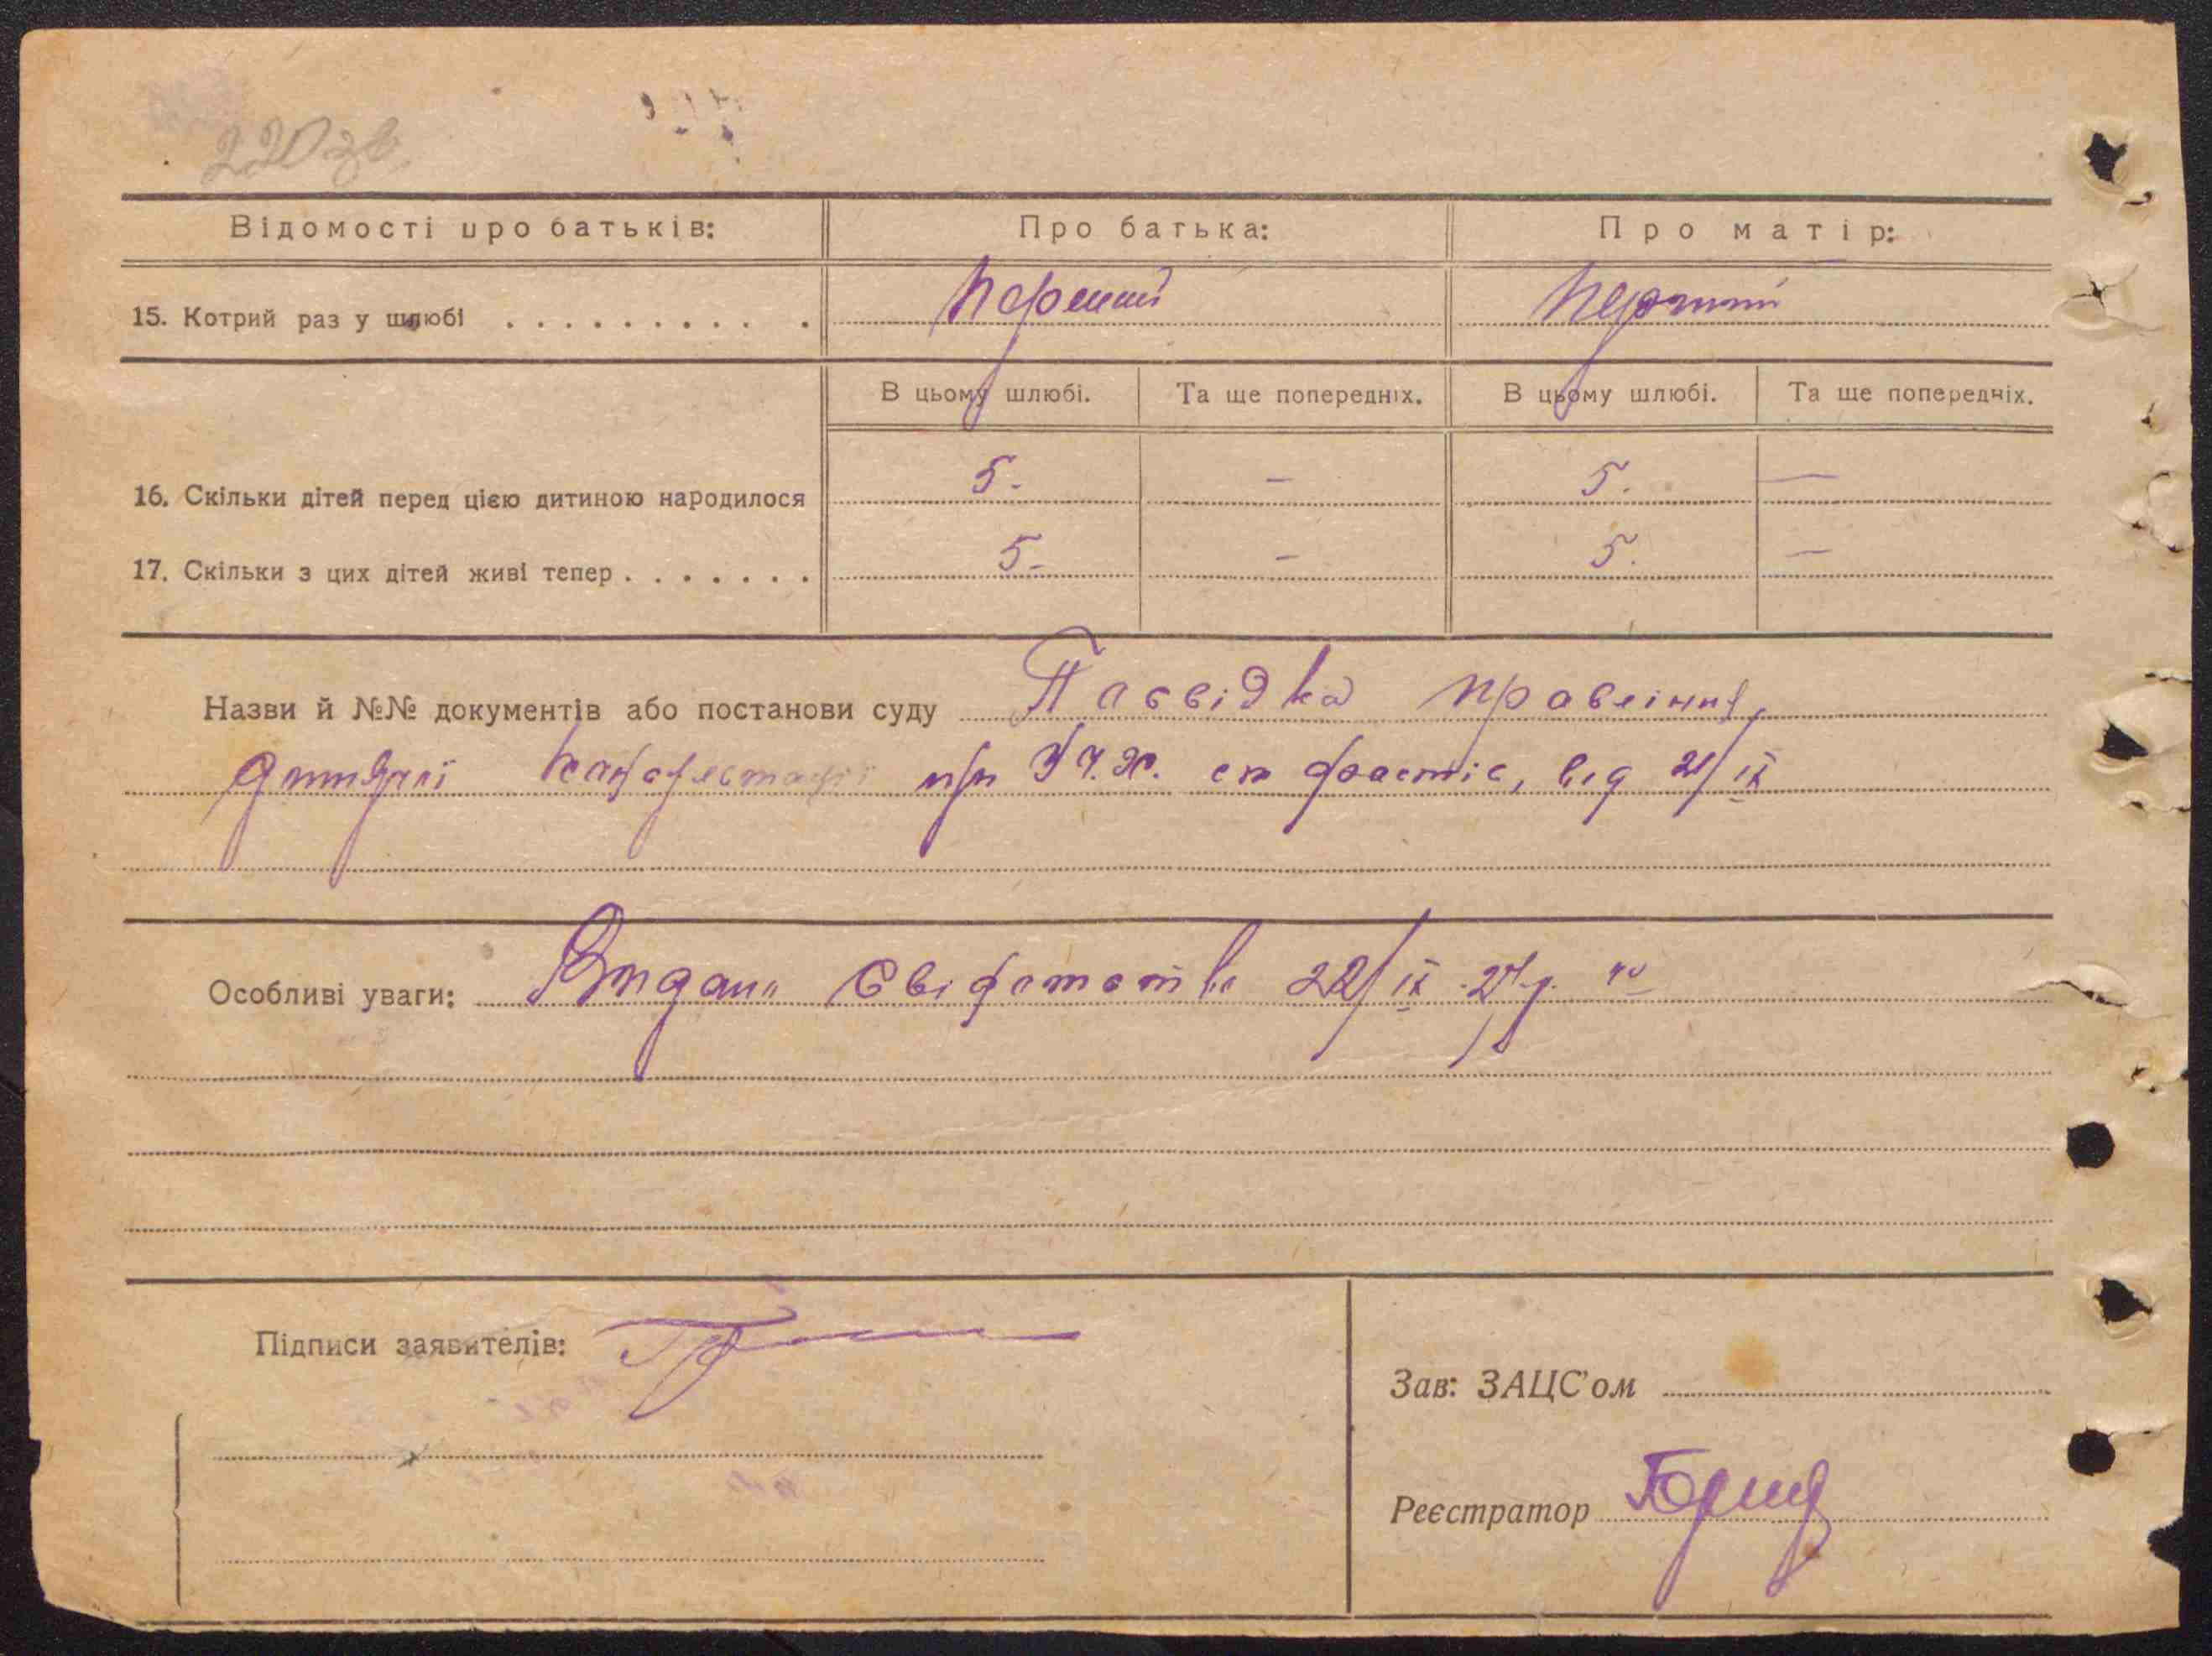 220 зв.
Відомості про батьків: Про батька: Про матір:
15. Котрий раз у шлюбі . . . . . . . . . . перший перший
В цьому шлюбі. Та ще попередніх. В цьому шлюбі. Та ще попередніх.
16. Скільки дітей перед цією дитиною народилося 5. - 5. —
17. Скільки з цих дітей живі тепер . . . . . . . 5- - 5. —
Назви й №№ документів або постанови суду Посвідка правління
при ст Фастів, від 21/IX
Особливі уваги: Видано 22/IX 27 р.
Підписи заявителів:
Зав: ЗАЦС'ом
Реєстратор